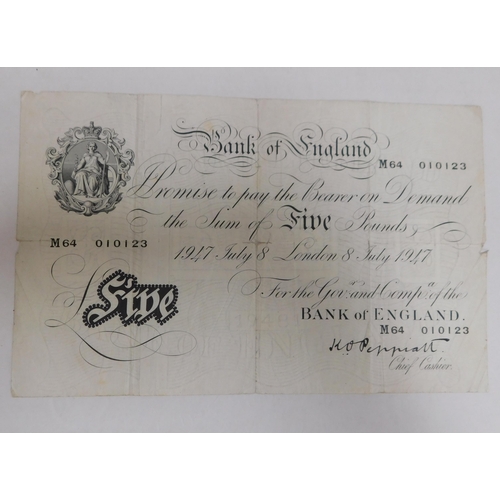 Bank of England
M64 010123
I Promise to pay the Bearer on Demand
the Sum of Five Pounds
M64 010123
1947 July 8 London 8 July 1947
For the Govr. and Compa. of the
BANK of ENGLAND.
M64 010123
£Five
K O Peppiatt
Chief Cashier.